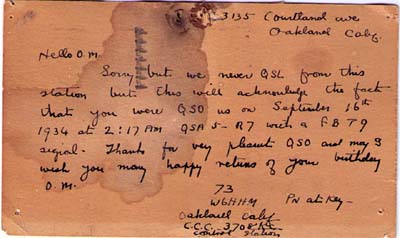 3135 Courtland ave
Oakland Calif.
Hello O.M.
Sorry but we never QSL from this
station but this will acknowledge the fact
that you were QSO us on September 16th
1934 at 2:17 AM QSA 5 - R7 with a F B T9
signal. Thanks for very pleasant QSO and may I
wish you many happy returns of your birthday
O.M.
73
W6HHM
Oakland Calif
C.C.C. 3708 Kc
control station
at Key -